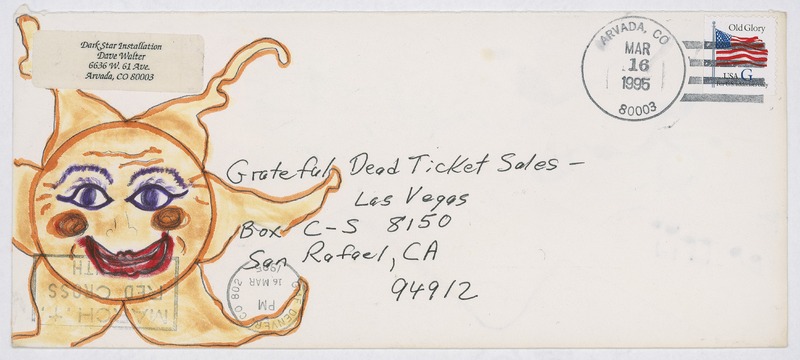 Dark Star Installation
Dave Walter
6636 W. 61 Ave.
Arvada, CO 80003
ARVADA, CO
MAR
16
1995
80003
Old Glory
USA G
For U.S. addresses only
Grateful Dead Ticket Sales -
Las Vegas
Box C-S 8150
San Rafael, CA
94912
MARCH IS
RED CROSS
MONTH
DENVER CO 802
PM
16 MAR
1995